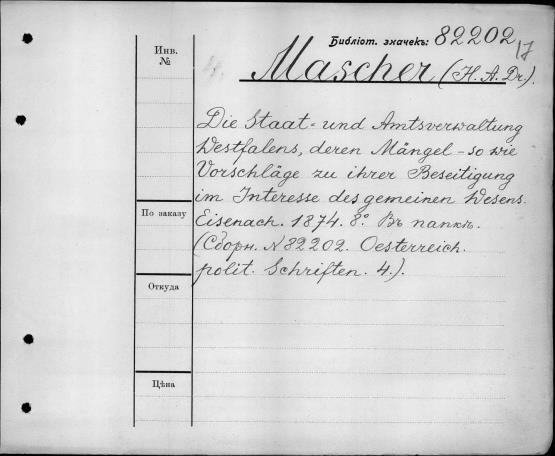 Библіот. значекъ: 82202/17
Инв.
№
4.
Mascher (H. A. Dr.).
Die Staat- und Amtsverwaltung
Westfalens, deren Mängel - so wie
Vorschläge zu ihrer Beseitigung
im Interesse des gemeinen Wesens.
Eisenach. 1874. 8°. Въ папкѣ.
(Сборн. № 82202. Oesterreich.
polit. Schriften. 4.).
По заказу
Откуда
Цѣна